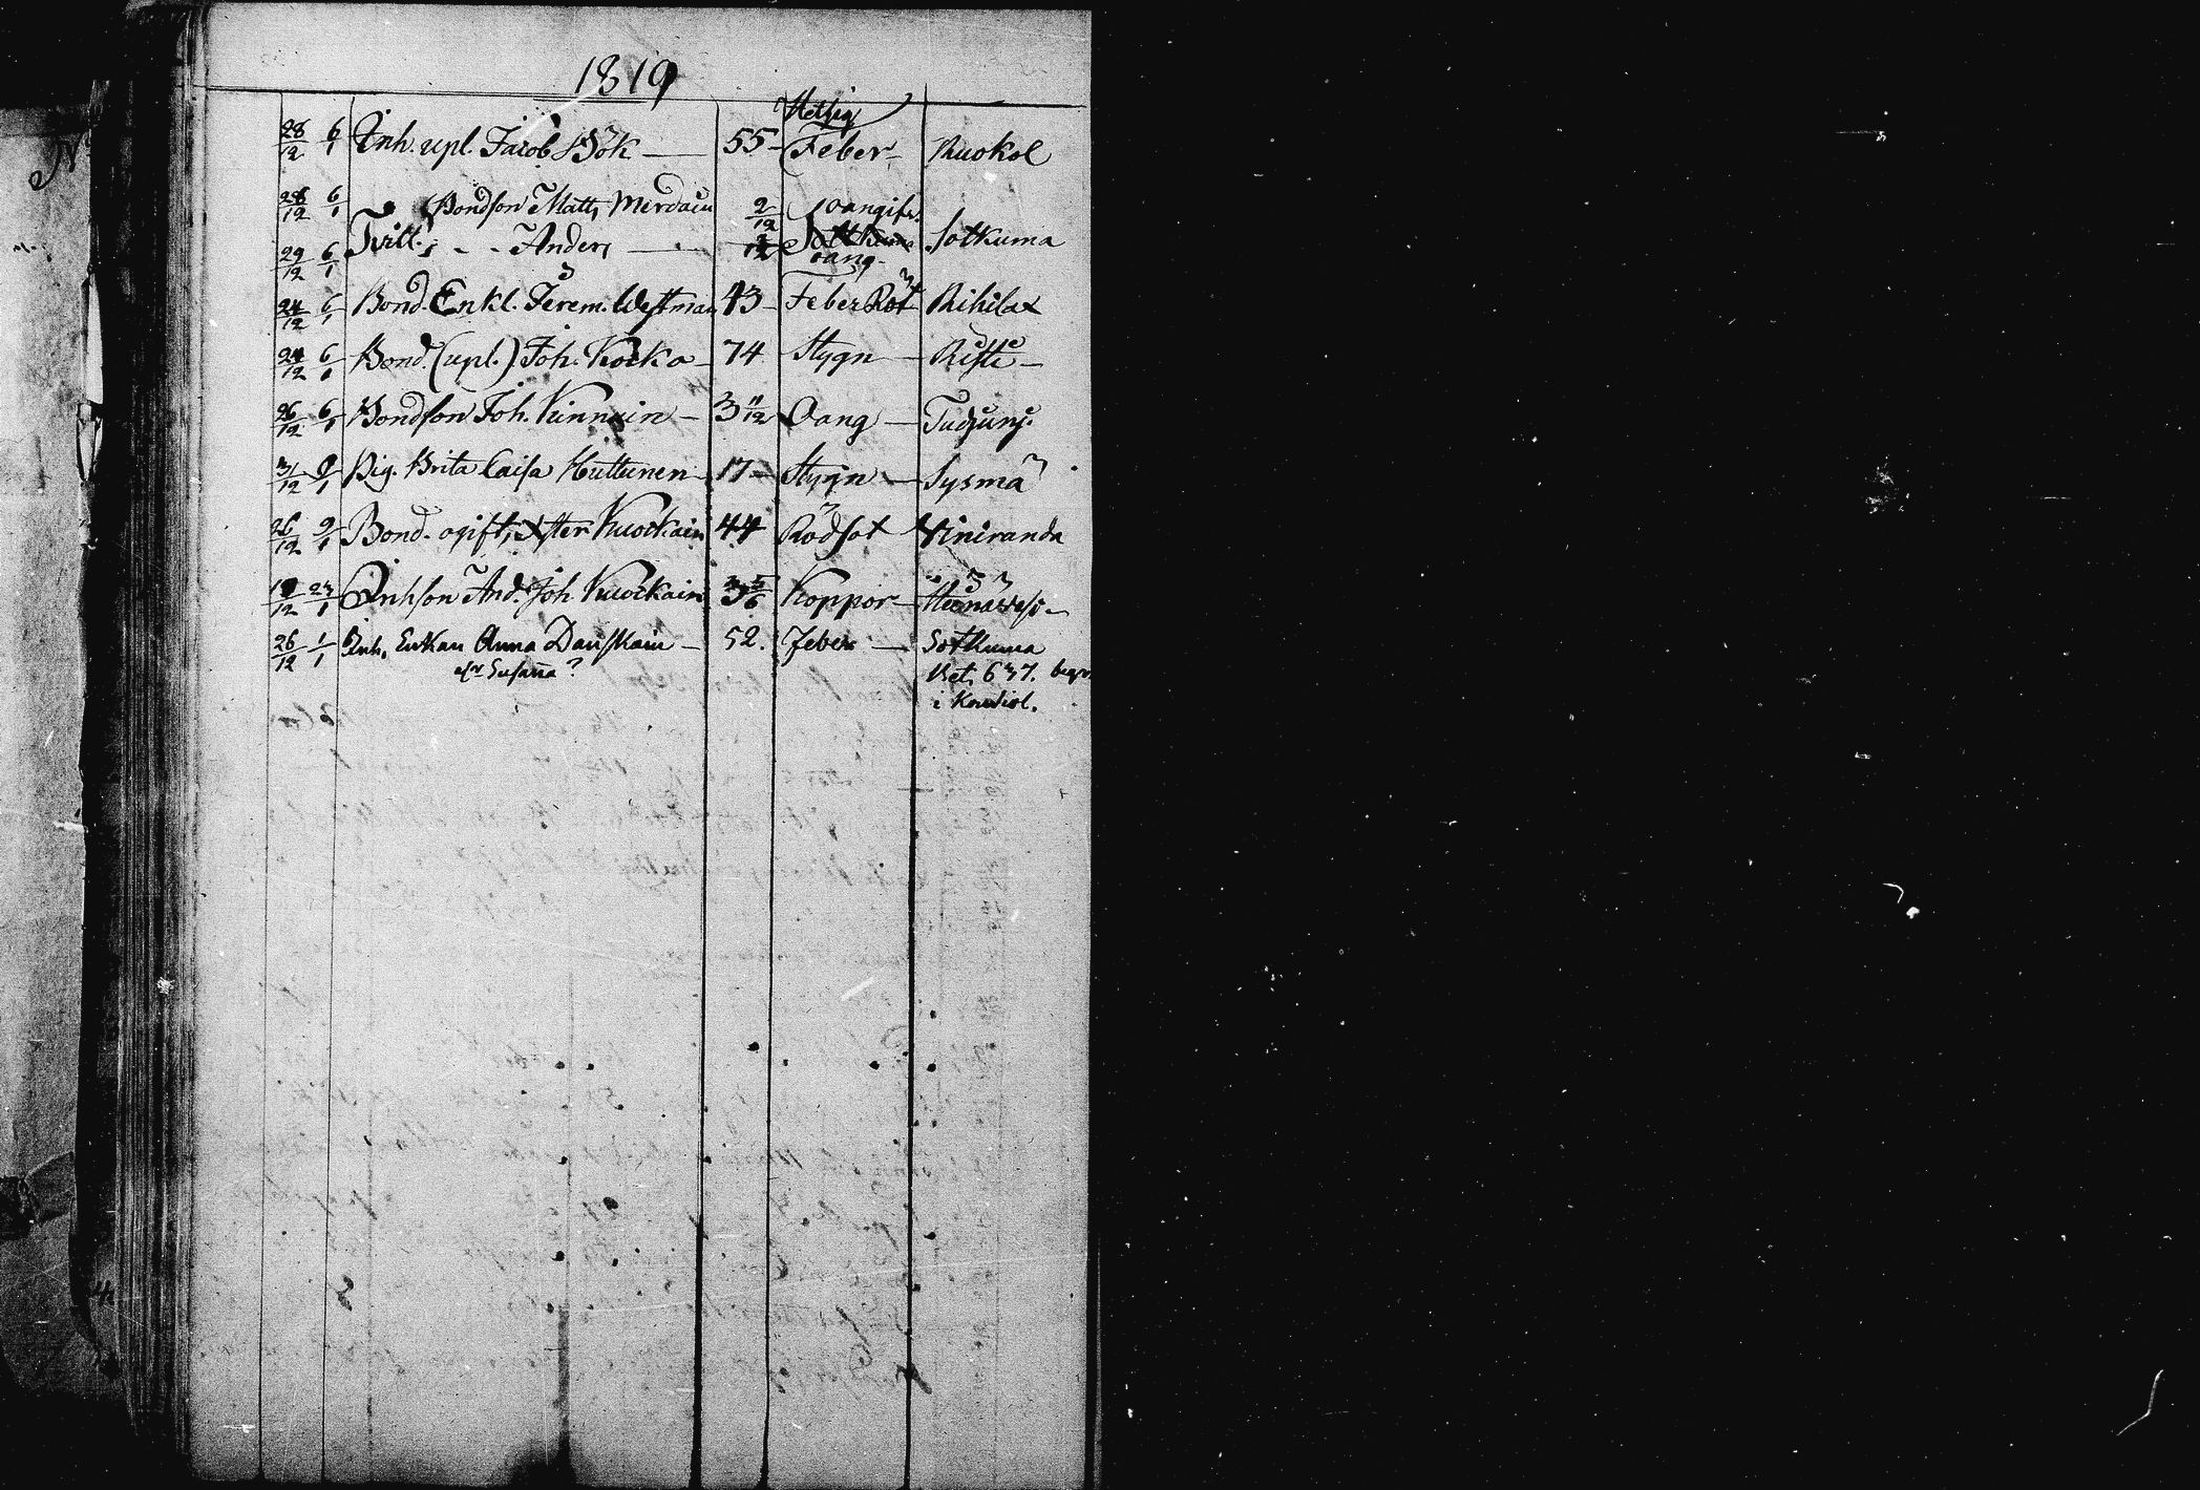 1819
28/12 6/1 Inh. upl. Jacob Bök — 55 — Hetsig Feber — Kuokol
28/12 6/1 Bondson Matts Mirdain 2/12 oangifv.
Tvill. 29/12 6/1 - - Anders — 2/12 oang. Sotkuma
24/12 6/1 Bond. Enkl. Jerem. Westman 43 — Feber Röt Rihilax
24/12 6/1 Bond. (upl.) Joh. Kocko — 74 Stygn — Riste —
26/12 6/1 Bondson Joh. Kinnuin — 3 11/12 Oang — Tudjunj.
31/12 9/1 Pig. Brita Caisa Huttunen — 17 — Stygn — Sysmä
26/12 9/1 Bond. ogift, Xster Kuockain 44 Rödsot Viniranda
19/12 23/1 Inhson And. Joh Kuockain 3 5/6 Koppor —
26/12 1/1 Inh. Enkan Anna Danskain — 52. Feber — Sotkuma
elr Susanna? Ret. 637. begr.
i Kondiol.